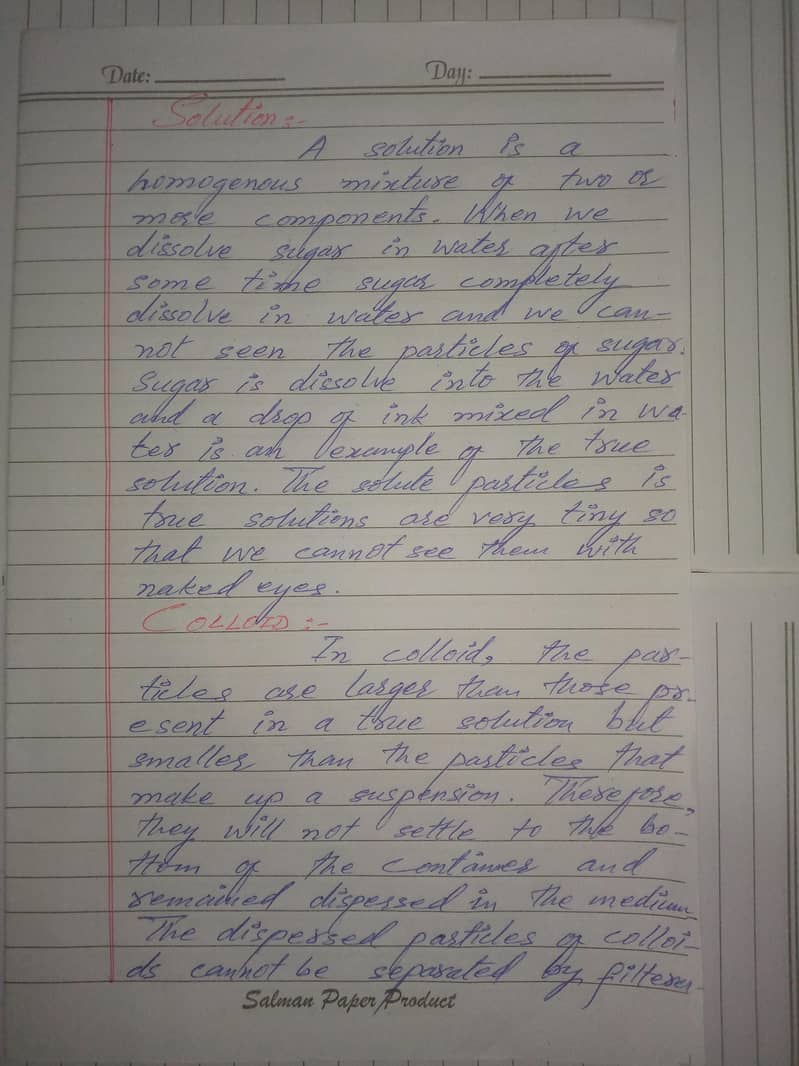 Date: Day:
Solution:-
A solution is a
homogenous mixture of two or
more components. When we
dissolve sugar in water after
some time sugar completely
dissolve in water and we can-
not seen the particles of sugar.
Sugar is dissolve into the water
and a drop of ink mixed in wa-
ter is an example of the true
solution. The solute particles is
true solutions are very tiny so
that we cannot see them with
naked eyes.
COLLOID:-
In colloid, the par-
ticles are larger than those pr-
esent in a true solution but
smaller than the particles that
make up a suspension. Therefore,
they will not settle to the bo-
ttom of the container and
remained dispersed in the medium
The dispersed particles of colloi-
ds cannot be separated by filter
Salman Paper Product